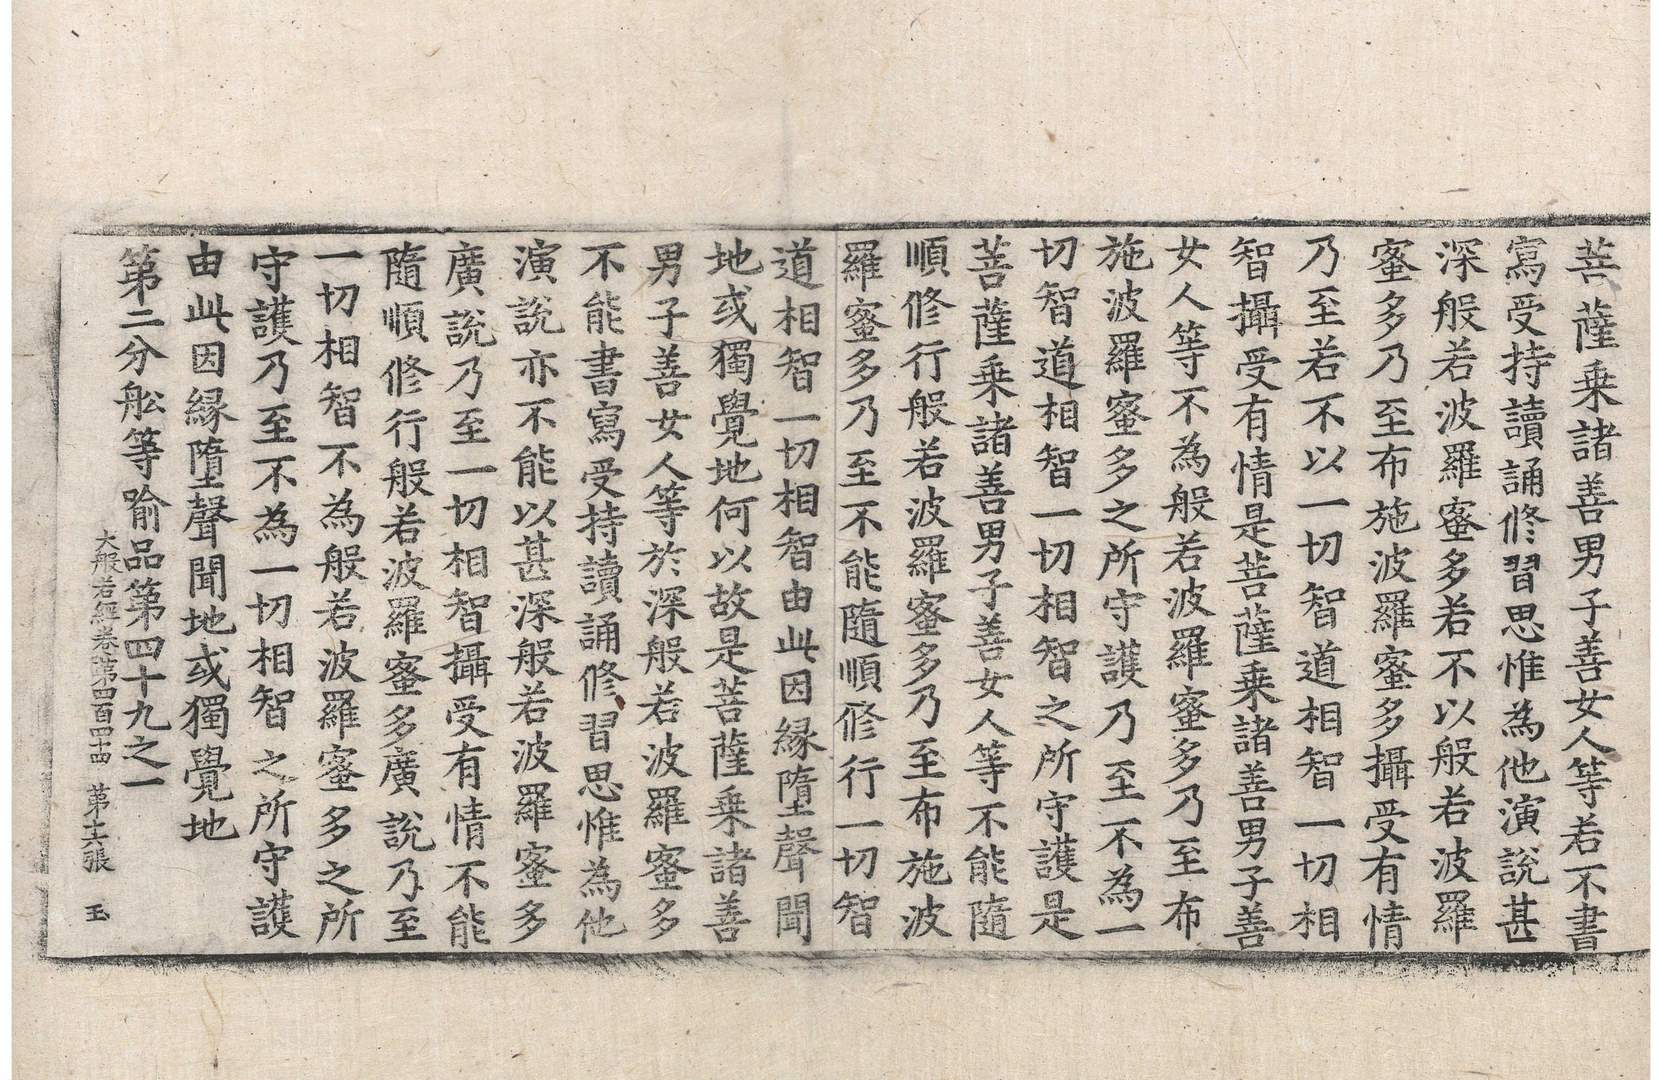 菩薩乗諸善男子善女人等若不書
寫受持讀誦修習思惟為他演說甚
深般若波羅蜜多若不以般若波羅
蜜多乃至布施波羅蜜多攝受有情
乃至若不以一切智道相智一切相
智攝受有情是菩薩乗諸善男子善
女人等不為般若波羅蜜多乃至布
施波羅蜜多之所守護乃至不為一
切智道相智一切相智之所守護是
菩薩乗諸善男子善女人等不能隨
順修行般若波羅蜜多乃至布施波
羅蜜多乃至不能隨順修行一切智
道相智一切相智由此因縁墮聲聞
地或獨覺地何以故是菩薩乗諸善
男子善女人等於深般若波羅蜜多
不能書寫受持讀誦修習思惟為他
演說亦不能以甚深般若波羅蜜多
廣說乃至一切相智攝受有情不能
隨順修行般若波羅蜜多廣說乃至
一切相智不為般若波羅蜜多之所
守護乃至不為一切相智之所守護
由此因縁墮聲聞地或獨覺地
第二分舩等喻品第四十九之一
大般若經卷第四百四十四 第十六張 玉